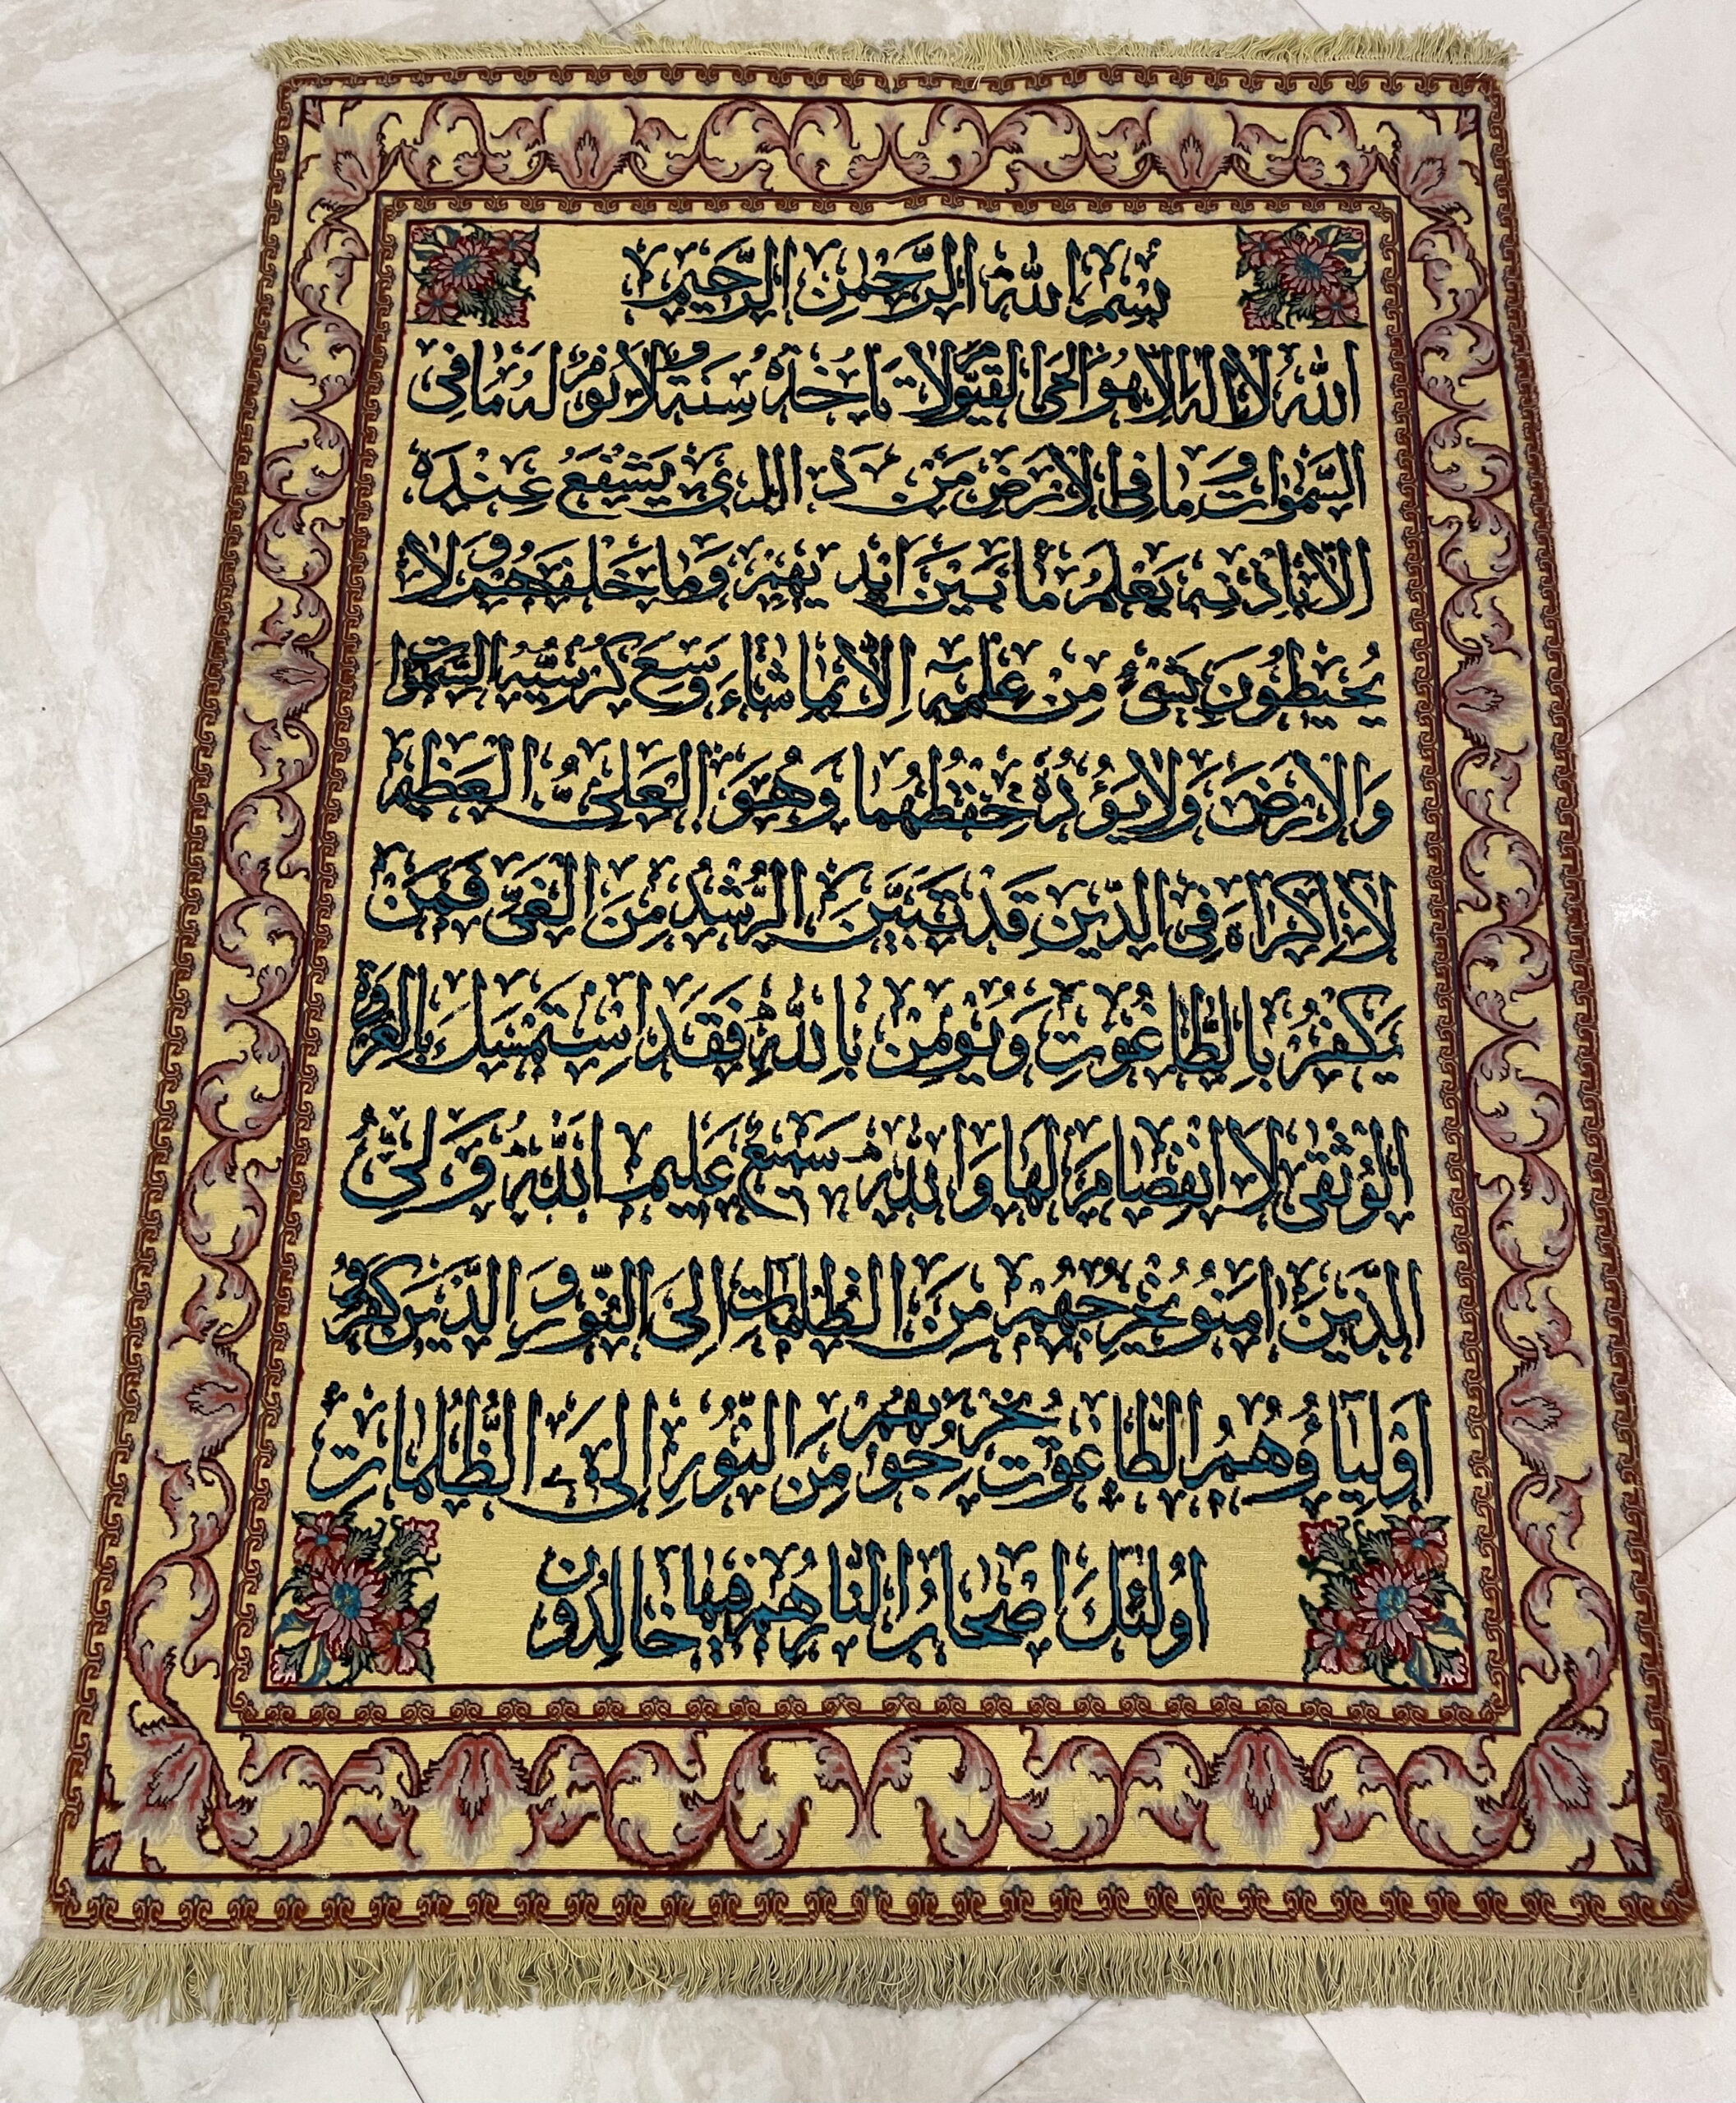 بسم الله الرحمن الرحيم
الله لا اله الا هو الحي القيو لا تاخذه سنة ولا نوم له ما في
السموات وما في الارض من ذ الذي يشفع عنده
الا باذنه يعلم ما بين ايديهم وما خلفهم ولا
يحيطون بشيء من علمه الا بما شاء وسع كرسيه السموات
والارض ولا يؤده حفظهما وهو العلي العظيم
لا اكراه في الدين قد تبين الرشد من الغي فمن
يكفر بالطاغوت ويومن بالله فقد استمسك بالعروة
الوثقى لا انفصام لها والله سميع عليم الله ولي
الذين امنو يخرجهم من الظلمات الى النور والذين كفرو
اولياؤهم الطاغوت يخرجونهم من النور الى الظلمات
اولئك اصحاب النار هم فيها خالدون